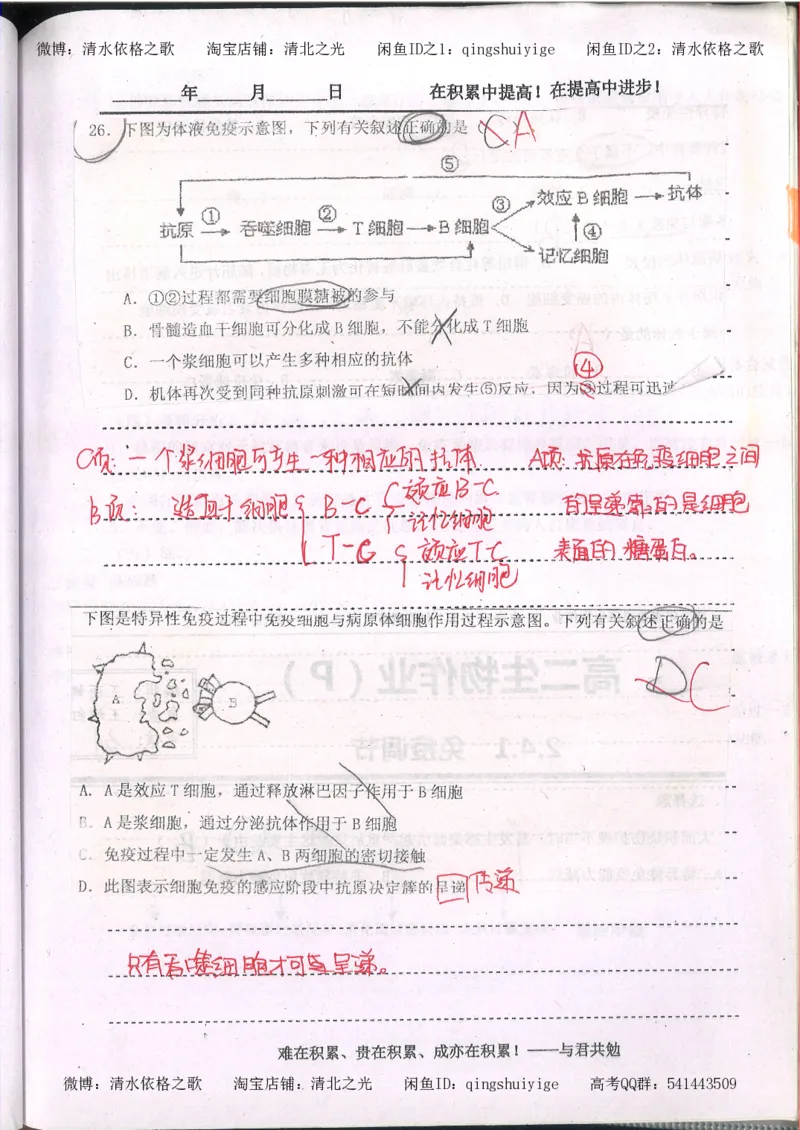 微博：清水依格之歌 淘宝店铺：清北之光 闲鱼ID之1：qingshuiyige 闲鱼ID之2：清水依格之歌
年 月 日 在积累中提高！在提高中进步！
26．下图为体液免疫示意图，下列有关叙述正确的是（C）A
⑤
抗原 ① 吞噬细胞 ② T细胞 B细胞 ③ 效应B细胞 抗体
④
记忆细胞
A．①②过程都需要细胞膜糖被的参与
B．骨髓造血干细胞可分化成B细胞，不能分化成T细胞
C．一个浆细胞可以产生多种相应的抗体
④
D．机体再次受到同种抗原刺激可在短时间内发生⑤反应，因为③过程可迅速
C项：一个浆细胞可产生一种相应的抗体 A项：抗原在免疫细胞之间
B项：造血干细胞 B-C 效应B-C 的呈递靠的是细胞
记忆细胞
T-C 效应T-C 表面的糖蛋白。
记忆细胞
下图是特异性免疫过程中免疫细胞与病原体细胞作用过程示意图。下列有关叙述正确的是
D C
A B
A．A是效应T细胞，通过释放淋巴因子作用于B细胞
B．A是浆细胞，通过分泌抗体作用于B细胞
C．免疫过程中一定发生A、B两细胞的密切接触
D．此图表示细胞免疫的感应阶段中抗原决定簇的呈递 传递
只有吞噬细胞才可以呈递。
难在积累、贵在积累、成亦在积累！——与君共勉
微博：清水依格之歌 淘宝店铺：清北之光 闲鱼ID：qingshuiyige 高考QQ群：541443509